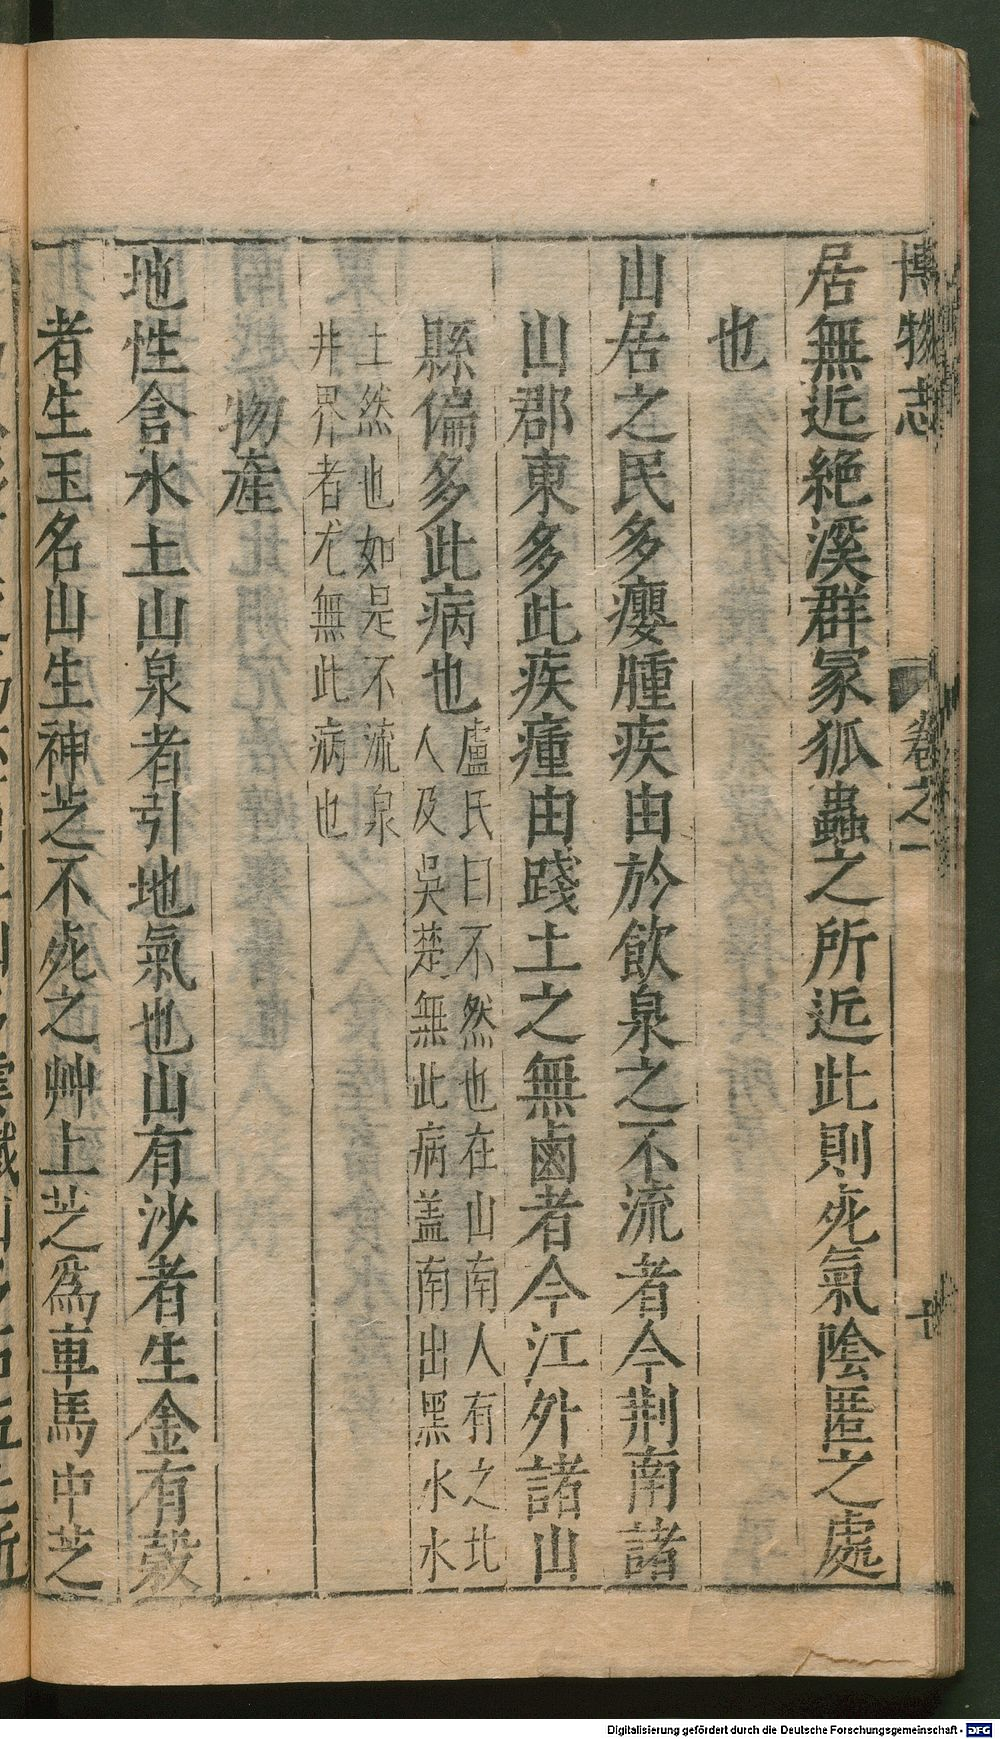 博物志 卷之一 十
居無近絶溪群冢狐蟲之所近此則死氣陰匿之處
也
山居之民多癭腫疾由於飲泉之不流者今荆南諸
山郡東多此疾瘇由踐土之無鹵者今江外諸山
縣偏多此病也盧氏曰不然也在山南人有之北
人及吳楚無此病蓋南出黑水水
土然也如是不流泉
井界者尤無此病也
物產
地性含水土山泉者引地氣也山有沙者生金有穀
者生玉名山生神芝不死之艸上芝爲車馬中芝
Digitalisierung gefördert durch die Deutsche Forschungsgemeinschaft - DFG